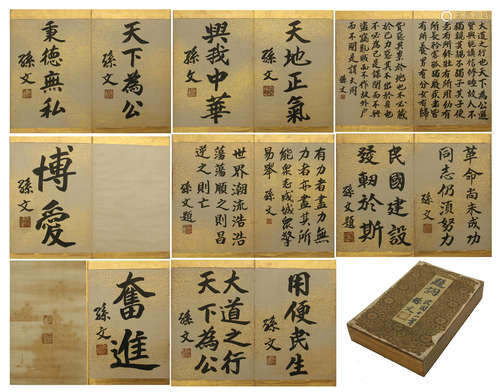 天下為公
孫文
秉德無私
孫文
天地正氣
孫文
興我中華
孫文
大道之行也天下為公選
賢與能講信修睦故人不
獨親其親不獨子其子使
老有所終壯有所用幼有
所長矜寡孤獨廢疾皆
有所養男有分女有歸
貨惡其棄於地也不必藏
於己力惡其不出於身也
不必為己是謀閉而不興
盜竊亂賊而不作故外戶
而不閉是謂大同
孫文
博愛
孫文
有力者盡力無
力者盡其所
能眾志成城眾擎
易舉 孫文
世界潮流浩浩
蕩蕩順之則昌
逆之則亡
孫文題
革命尚未成功
同志仍須努力
孫文
民國建設
發軔於斯
孫文題
奮進
孫文
用便民生
孫文
大道之行
天下為公
孫文